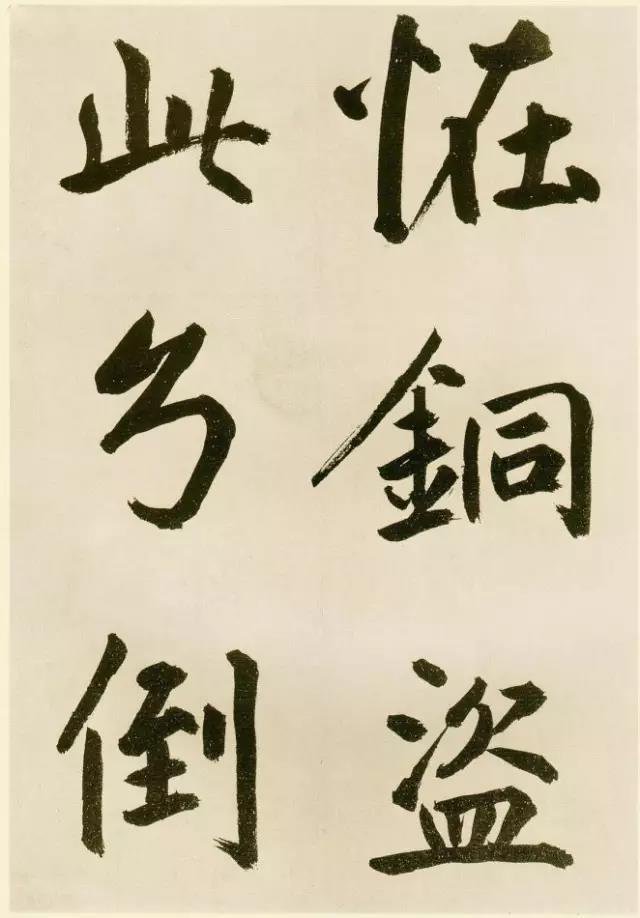 恠銅盜
此乃倒